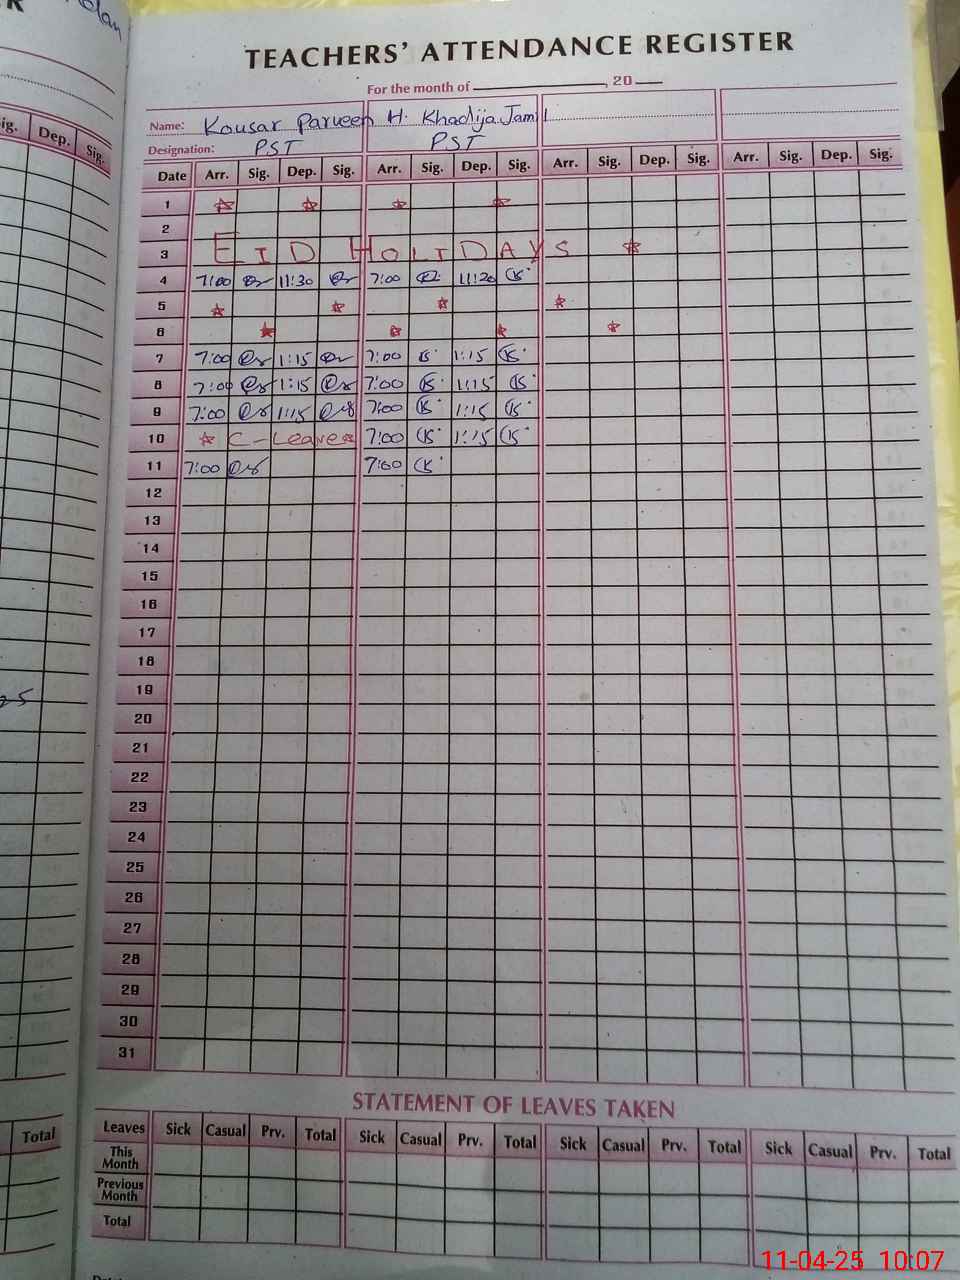 TEACHERS' ATTENDANCE REGISTER
For the month of , 20
Name: Kousar Parveen H. Khadija Jamil
Designation: PST PST
Date Arr. Sig. Dep. Sig. Arr. Sig. Dep. Sig. Arr. Sig. Dep. Sig. Arr. Sig. Dep. Sig.
ig. Dep. Sig.
1
2
3 EID HOLIDAYS
4 7:00 11:30 7:00 11:20
5
6
7 7:00 1:15 7:00 1:15
8 7:00 1:15 7:00 1:15
9 7:00 1:15 7:00 1:15
10 C-Leave 7:00 1:15
11 7:00 7:00
12
13
14
15
16
17
18
19
20
21
22
23
24
25
26
27
28
29
30
31
STATEMENT OF LEAVES TAKEN
Leaves Sick Casual Prv. Total Sick Casual Prv. Total Sick Casual Prv. Total Sick Casual Prv. Total
Total
This Month
Previous Month
Total
11-04-25 10:07